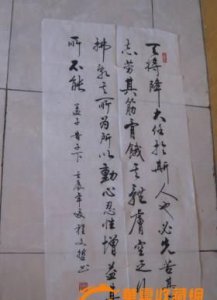 天將降大任於斯人也必先苦其
志勞其筋骨餓其體膚空乏
拂亂其所為所以動心忍性增益其
所不能 孟子告子下 壬辰年
华夏收藏网